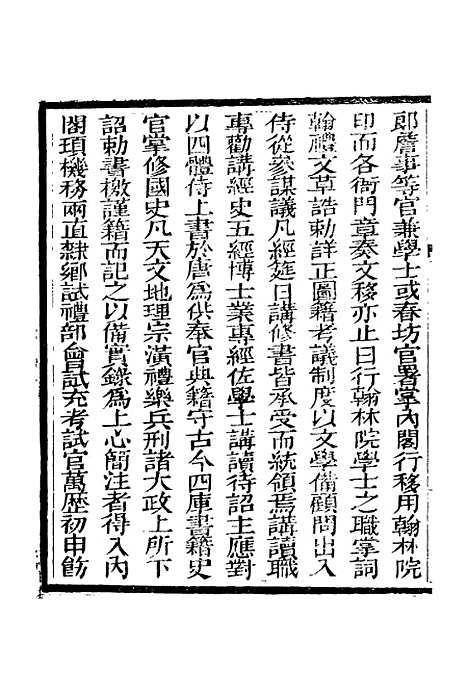 郎詹事等官兼學士或春坊官署掌內閣行移用翰林院
印而各衙門章奏文移亦止曰行翰林院學士之職掌詞
翰禮文草誥勅詳正圖籍考議制度以文學備顧問出入
侍從參謀議凡經筵日講修書皆承受而統領焉講讀職
專勸講經史五經博士業專經佐學士講讀待詔主應對
以四體侍上書於唐為供奉官典籍守古今四庫書籍史
官掌修國史凡天文地理宗潢禮樂兵刑諸大政上所下
詔勅書檄謹籍而記之以備實錄為上心簡注者得入內
閣項機務兩直隸鄉試禮部會試充考試官萬歷初申飭